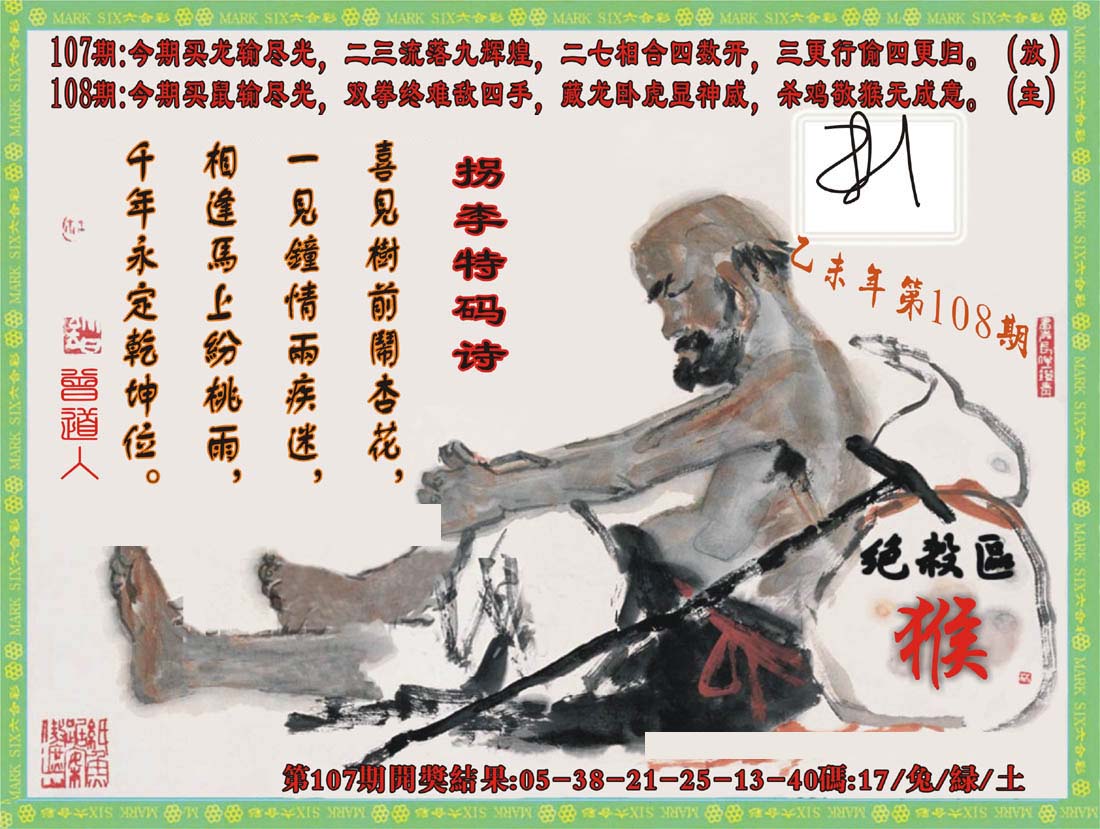 MARK SIX六合彩
107期:今期买龙输尽光，二三流落九辉煌，二七相合四数开，三更行偷四更归。(放)
108期:今期买鼠输尽光，双拳终难敌四手，藏龙卧虎显神威，杀鸡敬猴无成意。(主)
乙未年第108期
拐李特码诗
喜見樹前鬧杏花，
一見鐘情兩疾迷，
相逢馬上紛桃雨，
千年永定乾坤位。
曾道人
绝殺區
猴
第107期開獎結果:05-38-21-25-13-40碼:17/兔/緑/土